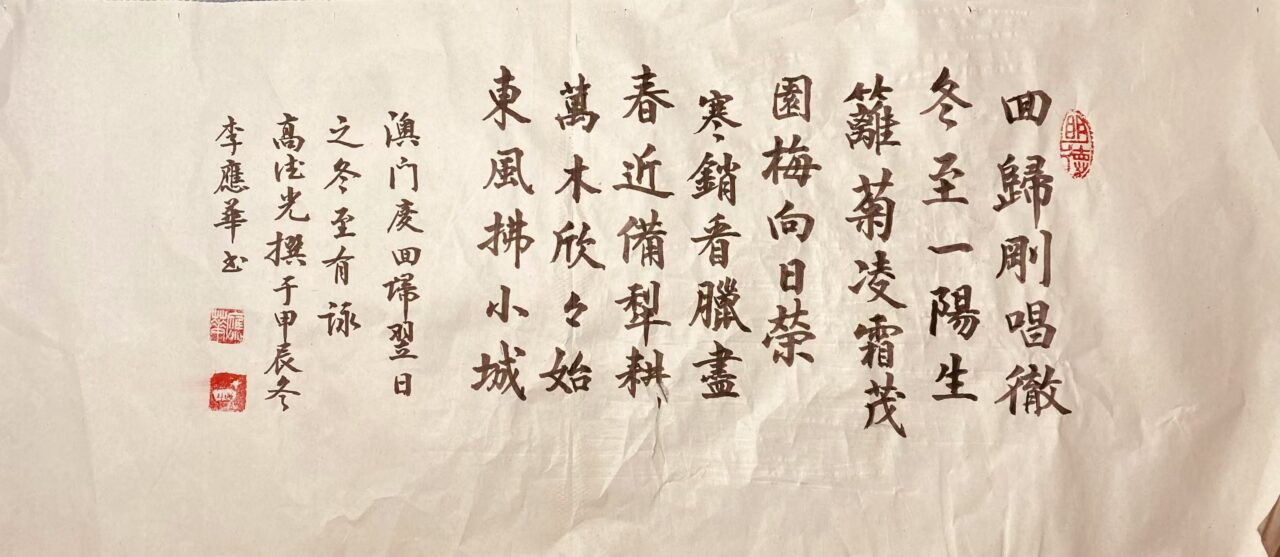 明德
回歸剛唱徹
冬至一陽生
籬菊凌霜茂
園梅向日榮
寒銷看臘盡
春近備犁耕
萬木欣々始
東風拂小城
澳门庆回歸翌日
之冬至有詠
高德光撰于甲辰冬
李應華书
應華